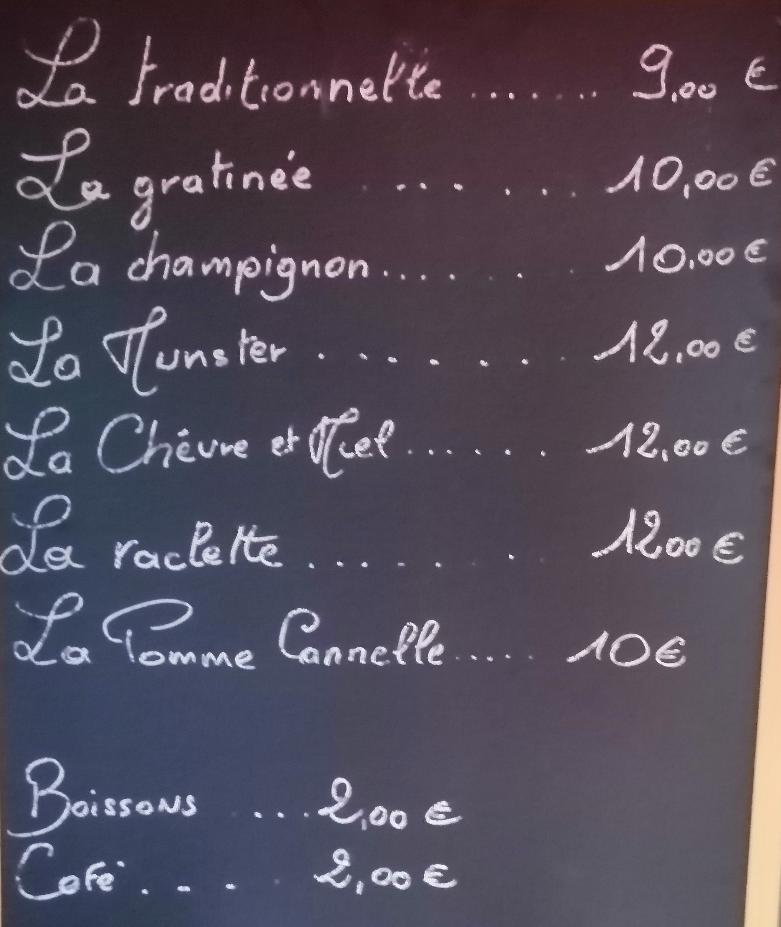 La traditionnelle ....... 9,00 €
La gratinée ....... 10,00 €
La champignon...... 10,00 €
La Munster ....... 12,00 €
La Chèvre et Miel...... 12,00 €
La raclette ....... 1200 €
La Pomme Cannelle..... 10€
Boissons ... 2,00 €
Café .... 2,00 €